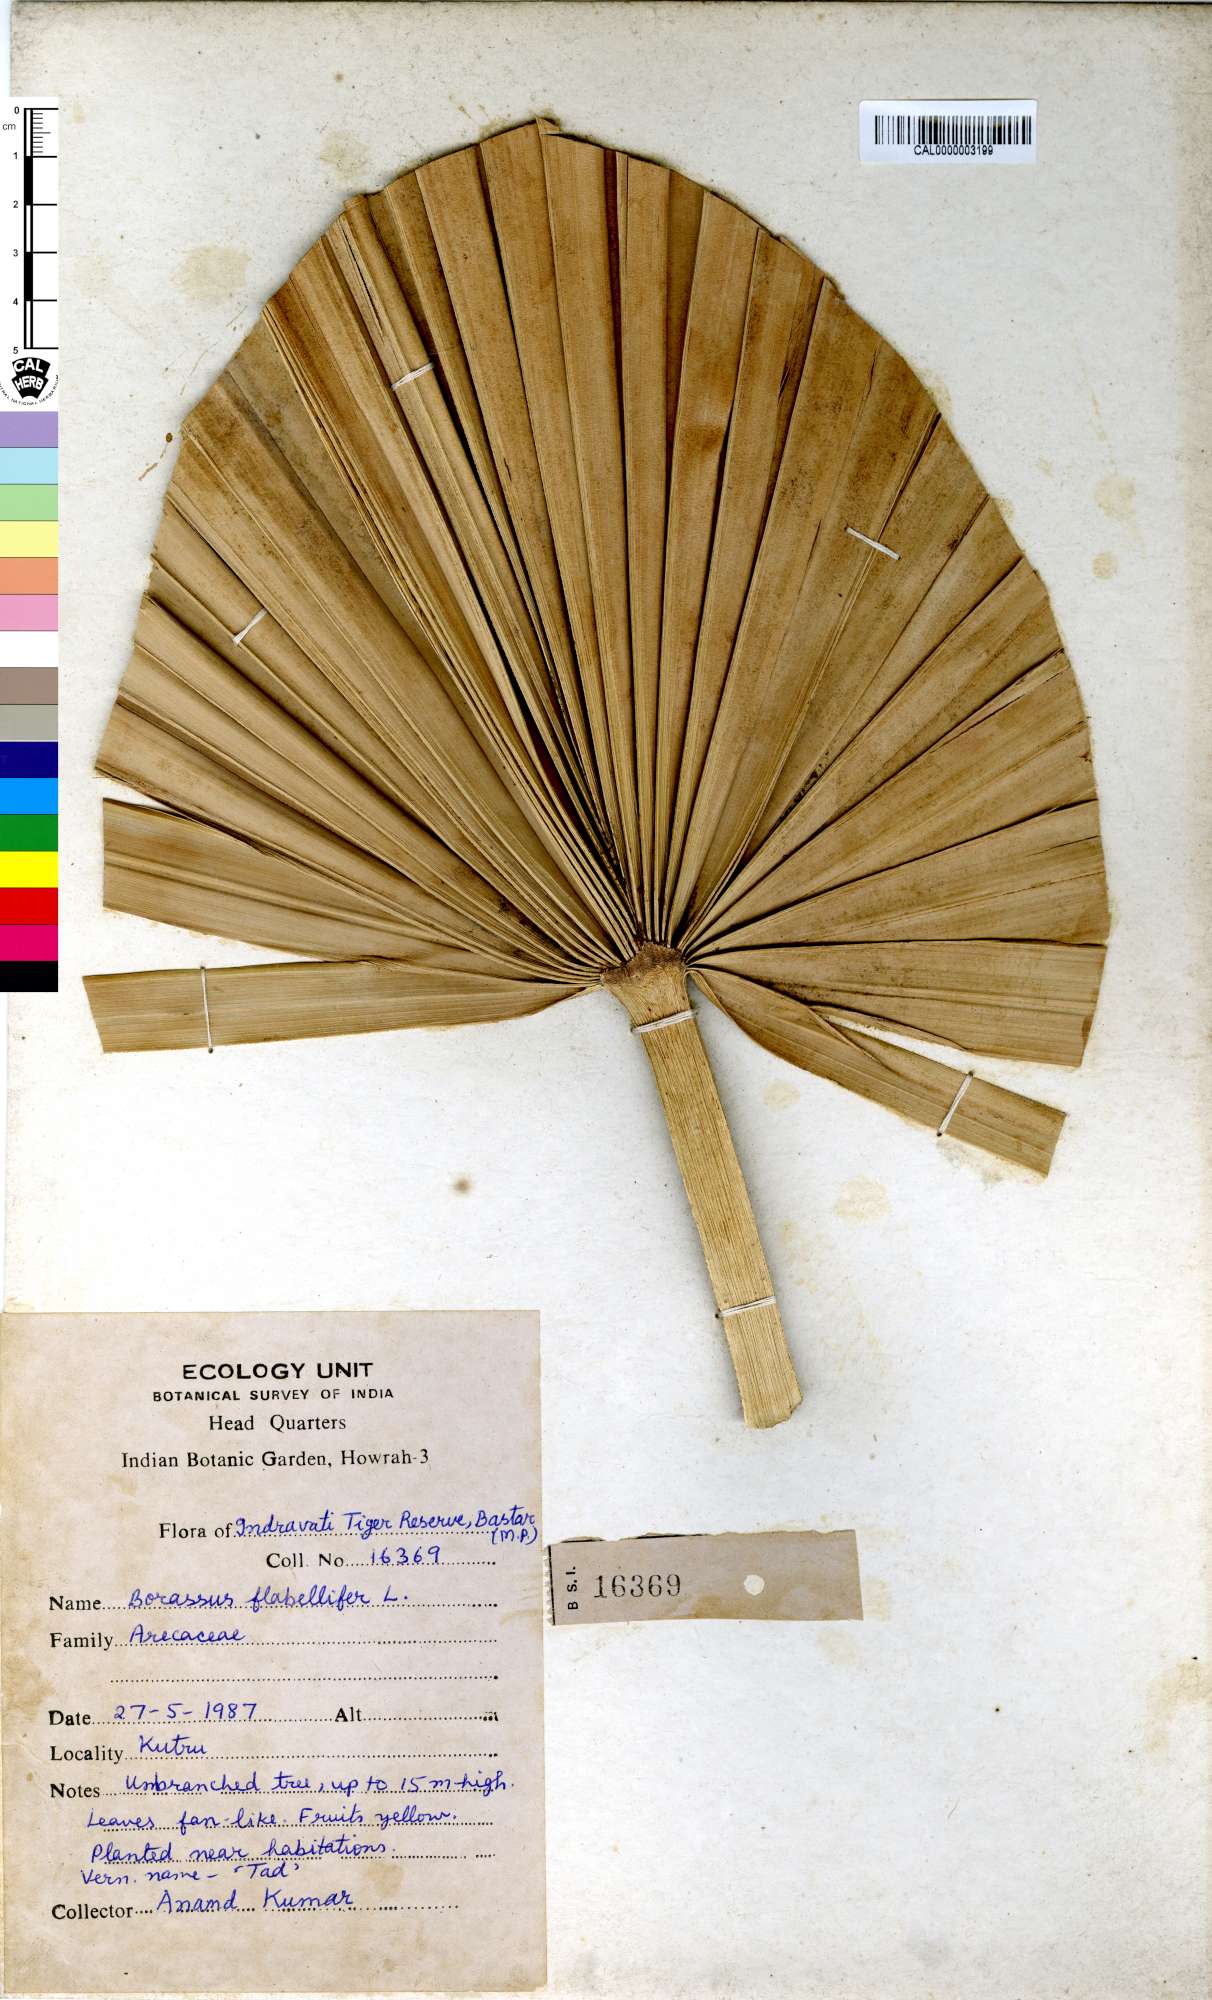 CAL0000003199
0
cm
1
2
3
4
5
CAL
HERB
ECOLOGY UNIT
BOTANICAL SURVEY OF INDIA
Head Quarters
Indian Botanic Garden, Howrah-3
Flora of Indravati Tiger Reserve, Bastar
(M.P.)
Coll. No. 16369
Name Borassus flabellifer L.
Family Arecaceae
Date 27-5-1987 Alt
Locality Kutru
Notes Unbranched tree, up to 15 m high.
Leaves fan-like. Fruits yellow.
Planted near habitations.
Vern. name - 'Tad'
Collector Anand Kumar
B S.I. 16369